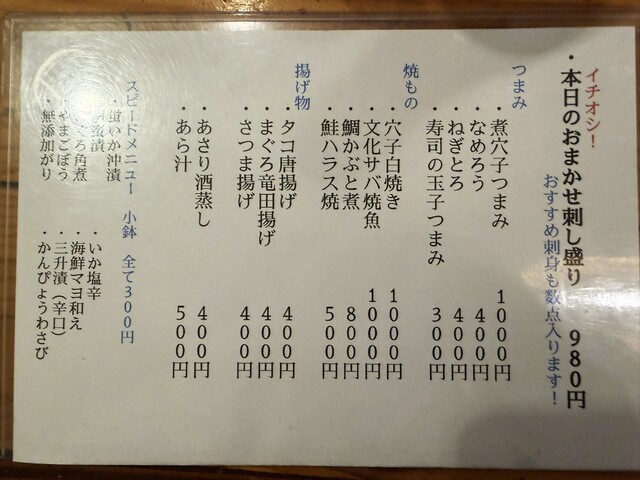 イチオシ！
・本日のおまかせ刺し盛り 980円
おすすめ刺身も数点入ります！
つまみ
・煮穴子つまみ 1000円
・なめろう 400円
・ねぎとろ 400円
・寿司の玉子つまみ 300円
焼もの
・穴子白焼き 1000円
・文化サバ焼魚 1000円
・鯛かぶと煮 800円
・鮭ハラス焼 500円
揚げ物
・タコ唐揚げ 400円
・まぐろ竜田揚げ 400円
・さつま揚げ 400円
・あさり酒蒸し 400円
・あら汁 500円
スピードメニュー 小鉢 全て300円
・蛍いか沖漬
蜜漬
ぐろ角煮
・やまごぼう
・無添加がり
・いか塩辛
・海鮮マヨ和え
・三升漬（辛口）
・かんぴょうわさび